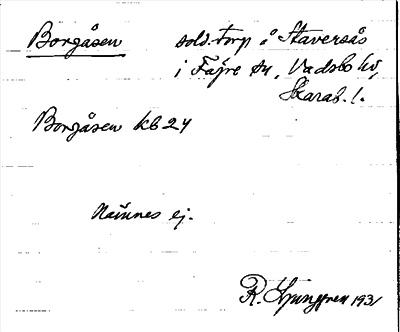 Borgåsen sold. torp å Staversås
i Fägre sn, Vadsbo hd,
Skarab. l.
Borgåsen kb 24
Nännes ej.
R. Ljunggren 1931